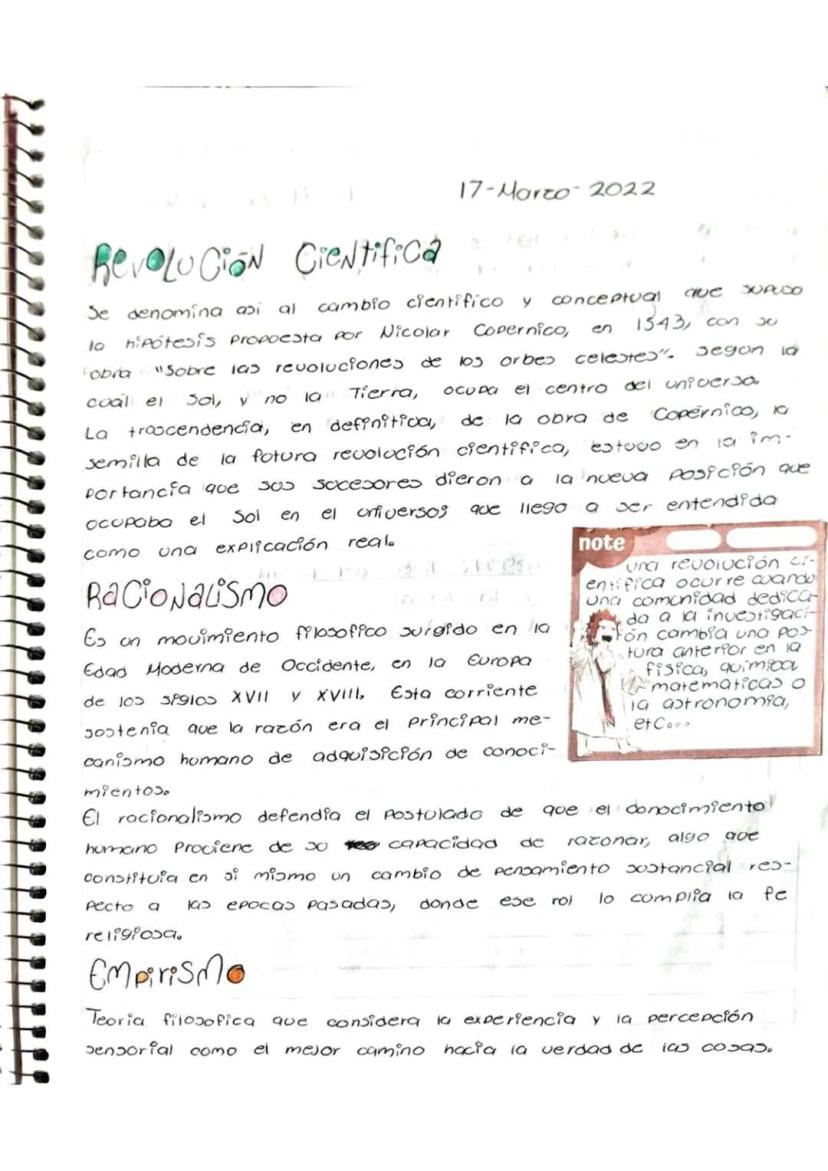 17-Marzo-2022
Revolución Científica
Se denomina asi al cambio científico y conceptual que supuso
la hipótesis propoesta por Nicolar Copernico, en 1543, con su
obra "Sobre las revoluciones de los orbes celestes". Segon la
cual el Sol, y no la Tierra, ocupa el centro del universo.
La trascendencia, en definitiva, de la obra de Copérnico, la
semilla de la futura revolución científica, estuvo en la im-
portancia que sus sucesores dieron a la nueva posición que
ocupaba el Sol en el universos que llego a ser entendida
como una explicación real.
Racionalismo
Es un movimiento filosofico surgido en la
Edad Moderna de Occidente, en la Europa
de los siglos XVII y XVIII. Esta corriente
sostenia que la razón era el principal me-
canismo humano de adquisición de conoci-
mientos.
El racionalismo defendia el postulado de que el conocimiento
humano Prociene de su capacidad de razonar, algo que
constituia en si mismo un cambio de pensamiento sustancial res-
pecto a las epocas pasadas, donde ese rol lo complia la fe
religiosa.
Empirismo
Teoria filosofica que considera la experiencia y la percepción
sensorial como el mejor camino hacia la verdad de las cosas.
note
una revolución ci-
entifica ocurre cuando
una comunidad dedica-
da a la investigaci-
ón cambia una pos-
tura anterior en la
física, química
matematicas o
la astronomía,
etc...